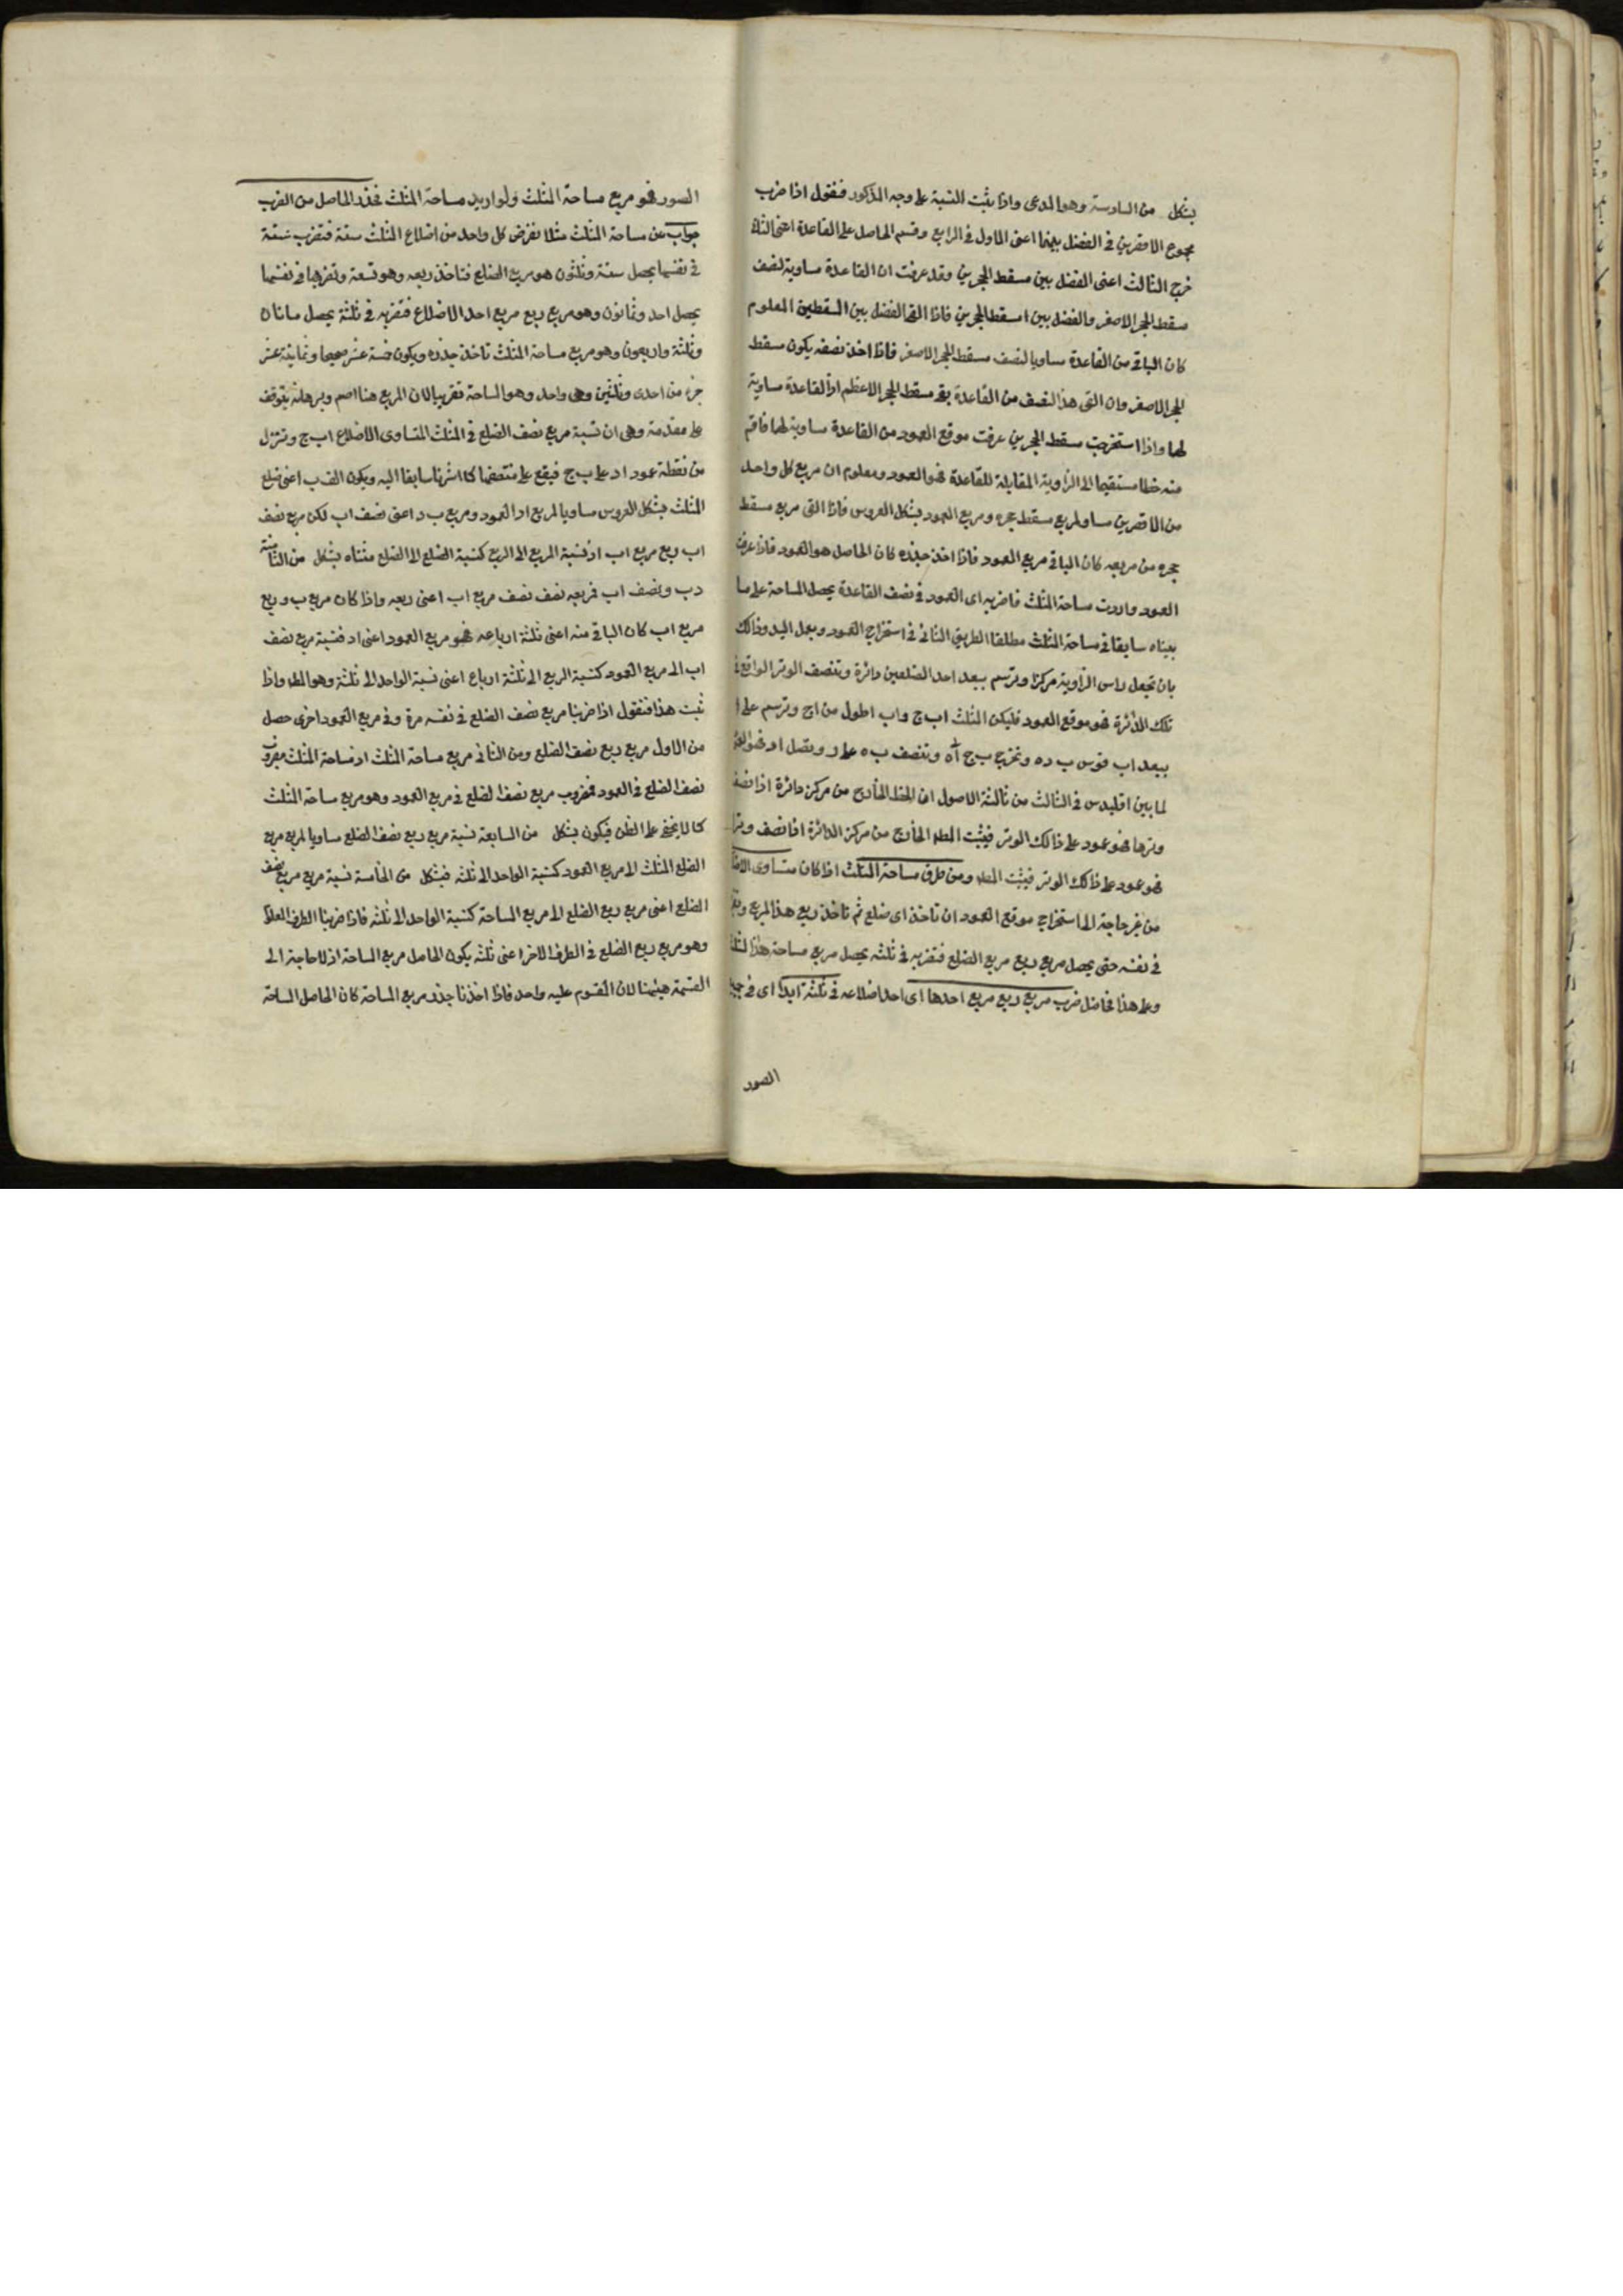 بشكل من السادسة وهو المدعى واذا ثبت النسبة على وجه المذكور فنقول اذا ضرب
مجموع الاقصرين في الفضل بينهما اعنى الاول في الرابع وقسم الحاصل على القاعدة اعنى الثانى
خرج الثالث اعنى الفضل بين مسقط الحجرين وقد عرفت ان القاعدة مساوية لضعف
مسقط الحجر الاصغر والفضل بين مسقط الحجرين فاذا القى الفضل بين المسقطين المعلوم
كان الباقى من القاعدة مساويا لضعف مسقط الحجر الاصغر فاذا اخذ نصفه يكون مسقط
الحجر الاصغر وان القى هذا النصف من القاعدة بقى مسقط الحجر الاعظم اذ القاعدة مساوية
لهما واذا استخرجت مسقط الحجرين عرفت موقع العمود من القاعدة مساوية لهما فاقم
منه خطا مستقيما الى الزاوية المقابلة للقاعدة فهو العمود ومعلوم ان مربع كل واحد
من الاقصرين مساو لمربع مسقط حجره ومربع العمود بشكل العروس فاذا القى مربع مسقط
حجره من مربعه كان الباقى مربع العمود فاذا اخذ جذره كان الحاصل هو العمود فاذا عرف
العمود واردت مساحة المثلث فاضربه اى العمود في نصف القاعدة يحصل المساحة على ما
بيناه سابقا في مساحة المثلث مطلقا الطريق الثانى في استخراج العمود وبعمل اليد وذالك
بان تجعل راس الزاوية مركزا وترسم ببعد احد الضلعين دائرة وتنصف الوتر الواقع في
تلك الدائرة فهو موقع العمود فليكن المثلث اب ج واب اطول من اج وترسم على ا
ببعد اب قوس ب ده ونخرج ب ج الى ه وتنصف ب ه على ر ونصل ار فهو العمود
لما بين اقليدس في الثالث من ثالثة الاصول ان الخط الخارج من مركز دائرة اذا نصف
وترها فهو عمود على ذالك الوتر فيثبت المط الخارج من مركز الدائرة اذا نصف وترا
فهو عمود على ذالك الوتر فيثبت المط ومن طرق مساحة المثلث اذا كان متساوى الاضلاع
من غير حاجة الى استخراج موقع العمود ان تاخذ اى ضلع ثم تاخذ ربع هذا المربع وتضربه
في نفسه حتى يحصل مربع ربع مربع الضلع فتضربه في ثلثه يحصل مربع مساحة هذا المثلث
وعلى هذا فحاصل ضرب مربع ربع مربع احدها اى احد اضلاعه في ثلثة ابدا اى في جميع
الصور
الصور فهو مربع مساحة المثلث ولو اريد مساحة المثلث فجذر الحاصل من الضرب
جواب عن مساحة المثلث مثلا نفرض كل واحد من اضلاع المثلث ستة فتضرب ستة
في نفسها يحصل ستة وثلثون هو مربع الضلع فتاخذ ربعه وهو تسعة وتضربها في نفسها
يحصل احد وثمانون وهو مربع ربع مربع احد الاضلاع فتضربه في ثلثة يحصل مائتان
وثلثة واربعون وهو مربع مساحة المثلث تاخذ جذره ويكون خمسة عشر صحيحا وثمانية عشر
جزء من احدى وثلثين وهى واحد وهو المساحة تقريبا لان المربع هنا اصم وبرهانه يتوقف
على مقدمة وهى ان نسبة مربع نصف الضلع في المثلث المتساوى الاضلاع اب ج وننزل
من نقطة عمود اد على ب ج فيقع على منتصفها كما اشرنا سابقا اليه ويكون اب اعنى ضلع
المثلث بشكل العروس مساويا لمربع اد العمود ومربع ب د اعنى نصف اب لكن مربع نصف
اب ربع مربع اب اذ نسبة المربع الى المربع كنسبة الضلع الى الضلع مثناه بشكل من الثامنة
دب ونصف اب فربعه نصف نصف مربع اب اعنى ربعه واذا كان مربع ب د ربع
مربع اب كان الباقى منه اعنى ثلثة ارباعه فهو مربع العمود اعنى اد فنسبة مربع نصف
اب الى مربع العمود كنسبة الربع الى ثلثة ارباع اعنى نسبة الواحد الى ثلثة وهو المط واذا
ثبت هذا فنقول اذا ضربنا مربع نصف الضلع في نفسه مرة وفي مربع العمود اخرى حصل
من الاول مربع ربع نصف الضلع ومن الثانى مربع مساحة المثلث اذ مساحة المثلث مضروب
نصف الضلع في العمود فمضروب مربع نصف الضلع في مربع العمود وهو مربع مساحة المثلث
كما لا يخفى على الفطن فيكون بشكل من السابعة نسبة مربع ربع نصف الضلع مساويا لمربع مربع
الضلع المثلث الى مربع العمود كنسبة الواحد الى ثلثه فبشكل من الخامسة نسبة مربع مربع نصف
الضلع اعنى مربع ربع الضلع الى مربع المساحة كنسبة الواحد الى ثلثه فاذا ضربنا الطرف
وهو مربع ربع الضلع في الطرف الاخر اعنى ثلثه يكون الحاصل مربع المساحة اذ لا حاجة الى
القسمة هيهنا لان المقسوم عليه واحد فاذا اخذنا جذر مربع المساحة كان الحاصل المساحة